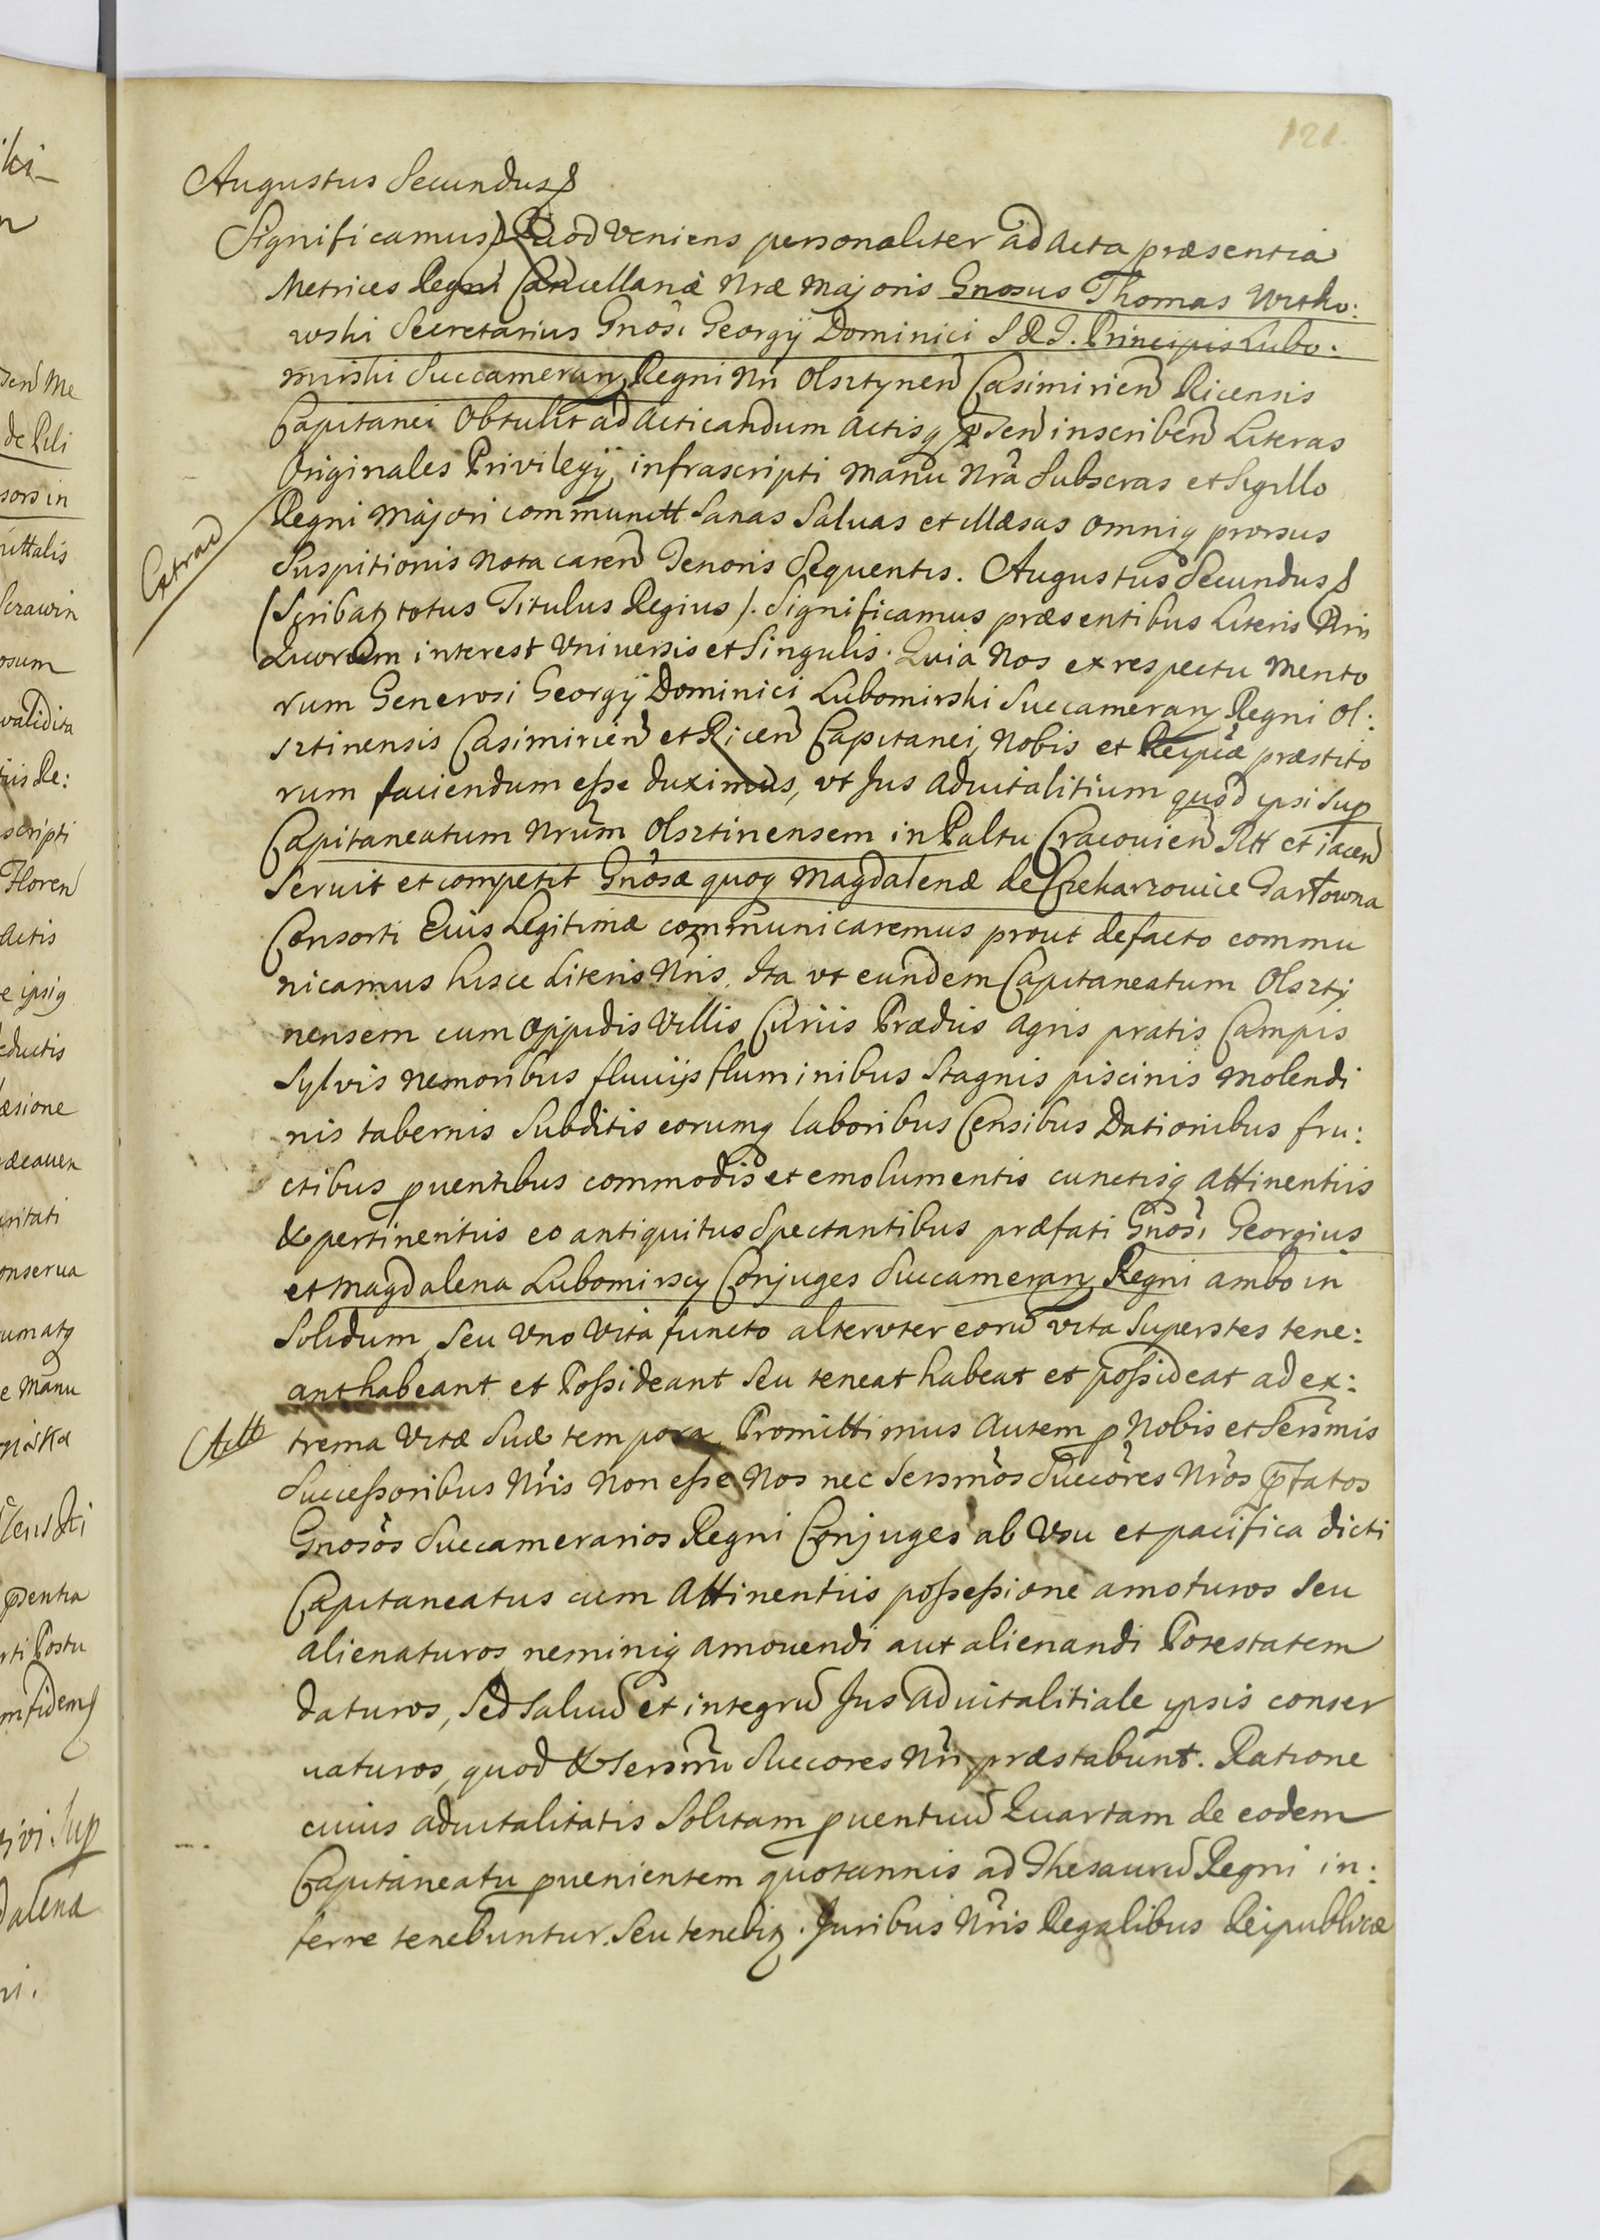 121.
Augustus Secundus
Significamus Quod Veniens personaliter ad Acta præsentia
Metrices Regni Cancellariæ Nræ Majoris Gnosus Thomas Witko:
wski Secretarius Gnosi Georgij Dominici S R I. Principis Lubo:
mirski Succamerary Regni Nri Olsztynen Casimirien Ricensis
Capitanei Obtulit ad Acticandum Actisq psen inscriben Literas
Originales Privilegij infrascripti Manu Nra Subscras et Sigillo
Regni Majori communitt Sanas Saluas et illæsas omniq prorsus
Extrad
Suspitionis nota caren Tenoris Sequentis. Augustus Secundus
(Scribatz totus Titulus Regius). Significamus præsentibus Literis Nris
Quorum interest Vniuersis et Singulis. Quia Nos ex respectu Merito
rum Generosi Georgij Dominici Lubomirski Succamerary Regni Ol:
sztinensis Casimirien et Ricen Capitanei, Nobis et Reipcæ præstito
rum faciendum esse duximus, vt Jus Aduitalitium quod ipsi sup
Capitaneatum Nrum Olsztinensem in Paltu Cracouien Stt et iacen
Seruit et competit Gnosæ quoq Magdalenæ de Czekarzowice Tarłowna
Consorti Eius Legitimæ communicaremus prout defacto commu
nicamus hisce Literis Nris. Ita vt eundem Capitaneatum Olszty
nensem cum Oppidis Villis Curiis Prædiis Agris pratis Campis
Sylvis Nemoribus fluuijs fluminibus Stagnis piscinis Molendi
nis tabernis Subditis eorumq laboribus Censibus Dationibus fru:
ctibus puentibus commodis et emolumentis cunctisq attinentiis
& pertinentiis eo antiquitus Spectantibus præfati Gnosi Georgius
et Magdalena Lubomirscy Conjuges Succamerary Regni ambo in
Solidum, Seu Vno Vita functo alteruter eoru vita Superstes tene:
ant habeant et Possideant Seu teneat habeat et possideat ad ex:
Actt
trema Vitæ Suæ tempora. Promittimus Autem p Nobis et Sersmis
Successoribus Nris Non esse Nos nec Sersmos Succores Nros pfatos
Gnosos Succamerarios Regni Conjuges ab Vsu et pacifica dicti
Capitaneatus cum Attinentiis possessione amoturos Seu
alienaturos neminiq amouendi aut alienandi Potestatem
daturos, Sed Saluu et integru Jus Aduitalitiale ipsis conser
uaturos, quod & Sersmi Succores Nri præstabunt. Ratione
cuius aduitalitatis Solitam puentuu Quartam de eodem
Capitaneatu puenientem quotannis ad Thesauru Regni in:
ferre tenebuntur. Seu tenebitz. Juribus Nris Regalibus Reipublicæ